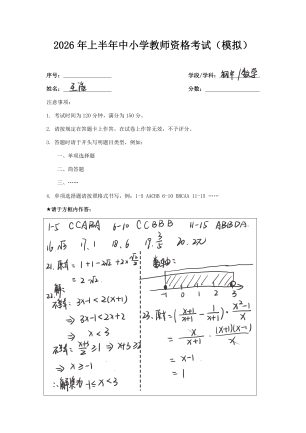 2026 年上半年中小学教师资格考试（模拟）
序号：
学段/学科：初中/数学
姓名：
分数：
注意事项：
1. 考试时间为 120 分钟，满分为 150 分。
2. 请按规定在答题卡上作答，在试卷上作答无效，不予评分。
3. 答题时请于开头写明题目类型，例如：
一、单项选择题
二、简答题
三、……
4. 单项选择题请按照格式书写，例：1-5 AACBB 6-10 BBCAA 11-15 ……
★请于方框内作答：
1-5 CCABA 6-10 CCBBB 11-15 ABBDA
16.√3 17.1 18.6 19.3/5
21.原式=1+1-2√2+2×√2
=2√2
解：
22.
3x-1<2(x+1)
⇒ 3x-1<2x+2
⇒ x<3
≥1 ⇒ x+3≥2
⇒ x≥-1
∴解集为-1≤x<3
数轴：
-1 0 1 2 3
23.原式=(x+1/x+1 - 1/x+1)·x²-1/x
=x/x+1·(x+1)(x-1)/x
=x-1
=1